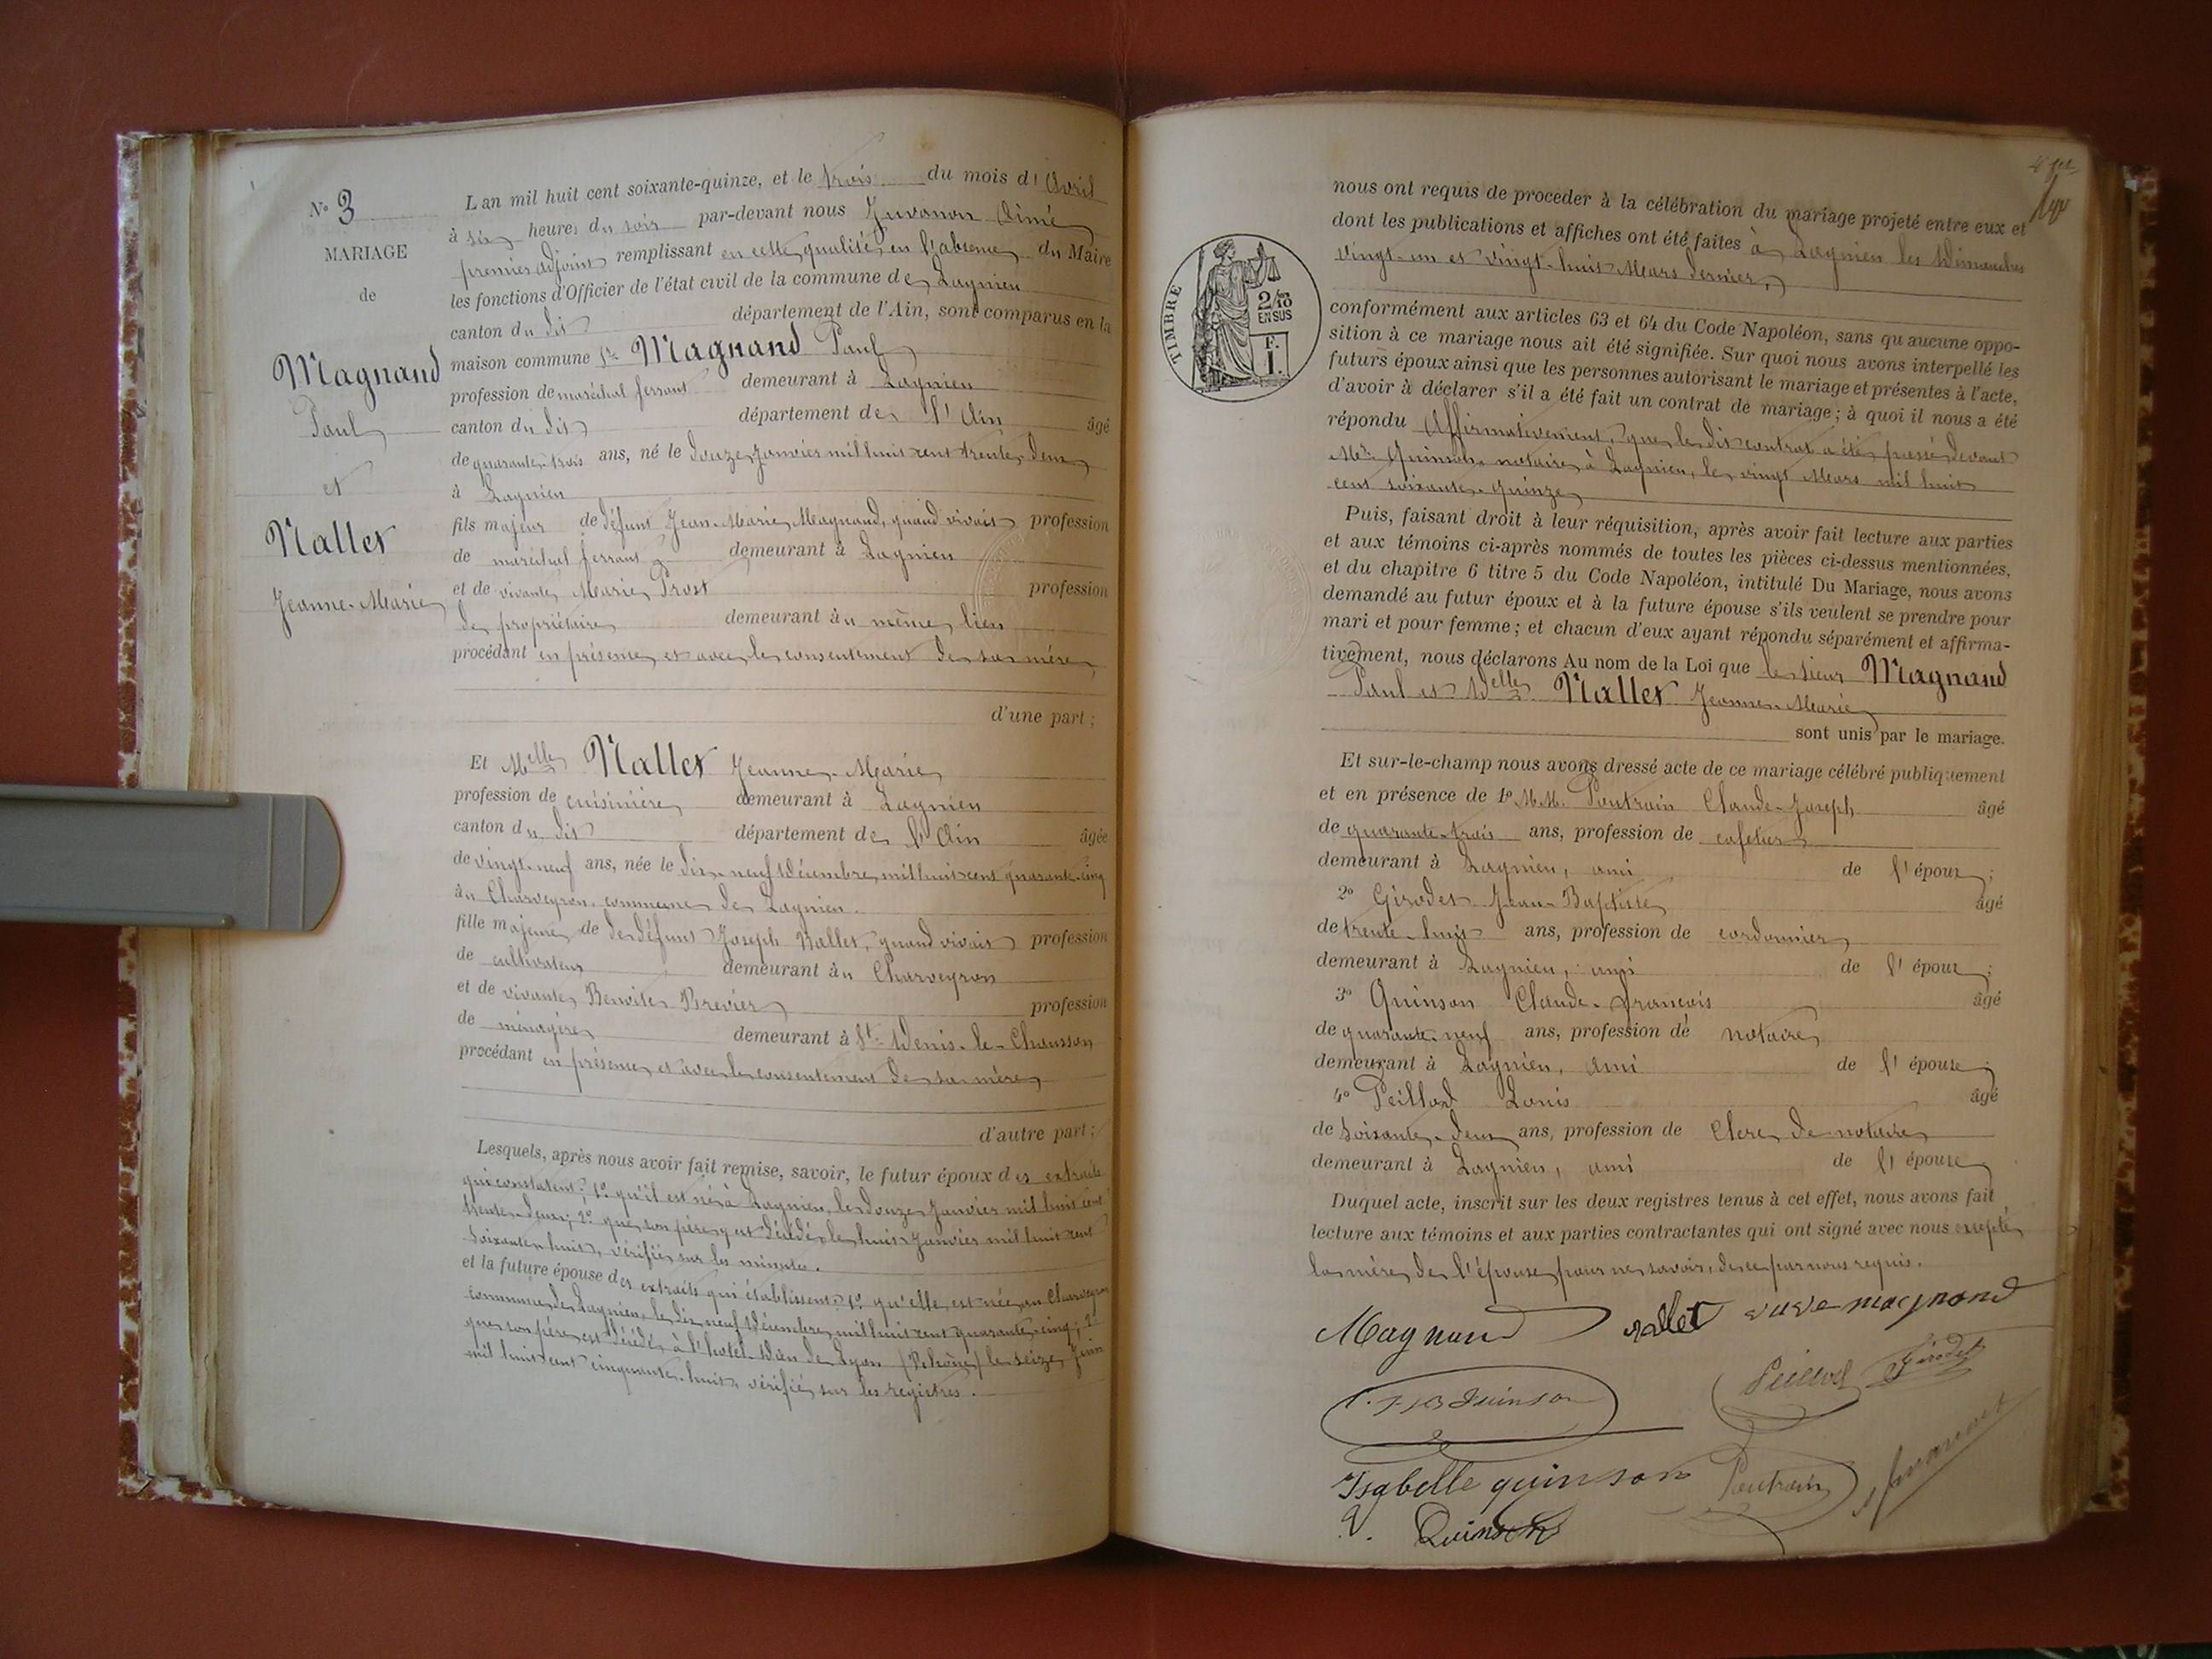 N° 3
MARIAGE
de
Magnand
Paul
et
Nallet
Jeanne-Marie
L'an mil huit cent soixante-quinze, et le trois du mois d'Avril
à six heures du soir par-devant nous Juvanon Aimé
premier adjoint remplissant en cette qualité, en l'absence du Maire
les fonctions d'Officier de l'état civil de la commune de Lagnieu
canton du dit département de l'Ain, sont comparus en la
maison commune Sr Magnand Paul
profession de maréchal ferrant demeurant à Lagnieu
canton du dit département de l'Ain âgé
de quarante-trois ans, né le douze Janvier mil huit cent trente-deux
à Lagnieu
fils majeur de défunt Jean-Marie Magnand, quand vivait profession
de maréchal ferrant demeurant à Lagnieu
et de vivante Marie Prost profession
de propriétaire demeurant au même lieu
procédant en présence et avec le consentement de sa mère,
d'une part;
Et Melle Nallet Jeanne-Marie
profession de cuisinière demeurant à Lagnieu
canton du dit département de l'Ain âgée
de vingt-neuf ans, née le dix-neuf Décembre mil huit cent quarante-cinq
au Charveyron commune de Lagnieu.
fille majeure de de défunt Joseph Nallet, quand vivait profession
de cultivateur demeurant au Charveyron
et de vivante Benoite Brevier profession
de ménagère demeurant à St-Denis-le-Chausson
procédant en présence et avec le consentement de sa mère
d'autre part;
Lesquels, après nous avoir fait remise, savoir, le futur époux des extraits
qui constatent: 1° qu'il est né à Lagnieu, le douze Janvier mil huit cent
trente-deux; 2° que son père y est décédé le huit Janvier mil huit cent
soixante-huit, vérifié sur les minutes.
et la future épouse des extraits qui établissent: 1° qu'elle est née au Charveyron
commune de Lagnieu le dix neuf Décembre mil huit cent quarante-cinq; 2°
que son père est décédé à l'hotel-Dieu de Lyon (Rhône) le seize Juin
mil huit cent cinquante-huit, vérifié sur les registres.
nous ont requis de procéder à la célébration du mariage projeté entre eux et
dont les publications et affiches ont été faites à Lagnieu les Dimanches
vingt-un et vingt-huit Mars dernier,
TIMBRE
2/10
EN SUS
F.
1.
conformément aux articles 63 et 64 du Code Napoléon, sans qu'aucune oppo-
sition à ce mariage nous ait été signifiée. Sur quoi nous avons interpellé les
futurs époux ainsi que les personnes autorisant le mariage et présentes à l'acte,
d'avoir à déclarer s'il a été fait un contrat de mariage; à quoi il nous a été
répondu Affirmativement, que le dit contrat a été passé devant
Me Quinson, notaire à Lagnieu, le vingt Mars mil huit
cent soixante-quinze
Puis, faisant droit à leur réquisition, après avoir fait lecture aux parties
et aux témoins ci-après nommés de toutes les pièces ci-dessus mentionnées,
et du chapitre 6 titre 5 du Code Napoléon, intitulé Du Mariage, nous avons
demandé au futur époux et à la future épouse s'ils veulent se prendre pour
mari et pour femme; et chacun d'eux ayant répondu séparément et affirma-
tivement, nous déclarons Au nom de la Loi que le sieur Magnand
Paul et Delle Nallet Jeanne-Marie
sont unis par le mariage.
Et sur-le-champ nous avons dressé acte de ce mariage célébré publiquement
et en présence de 1° MM. Poutrain Claude-Joseph âgé
de quarante-trois ans, profession de cafetier
demeurant à Lagnieu, ami de l'époux;
2° Girodet Jean-Baptiste âgé
de trente-huit ans, profession de cordonnier
demeurant à Lagnieu, ami de l'époux;
3° Quinson Claude-françois âgé
de quarante-neuf ans, profession de notaire
demeurant à Lagnieu, ami de l'épouse;
4° Peillod Louis âgé
de soixante-deux ans, profession de Clerc de notaire
demeurant à Lagnieu, ami de l'épouse
Duquel acte, inscrit sur les deux registres tenus à cet effet, nous avons fait
lecture aux témoins et aux parties contractantes qui ont signé avec nous excepté
la mère de l'épouse pour ne savoir, de ce par nous requis.
Magnand nallet veuve magnand
Quinson Peillod Girodet
Isabelle quinson Poutrain
V. Quinson